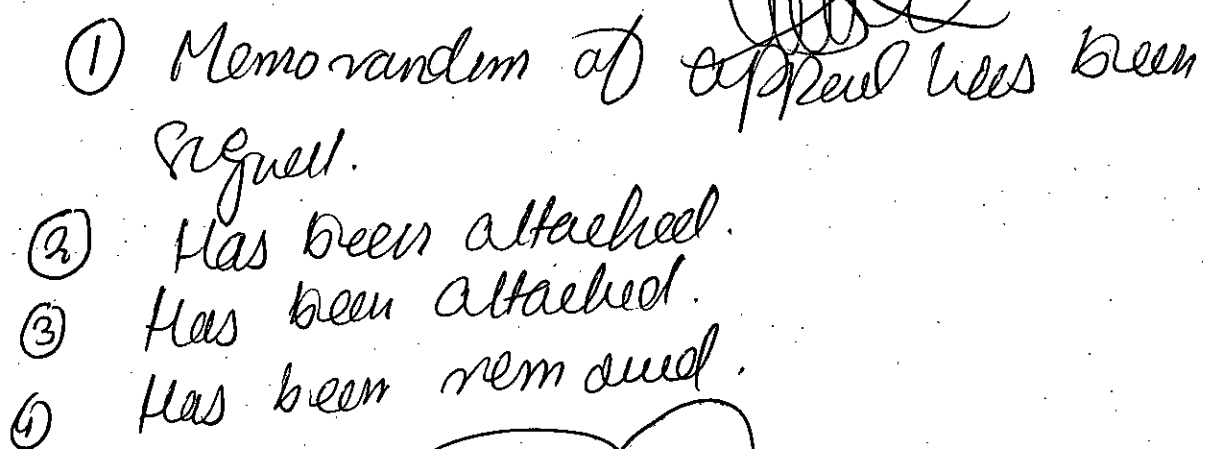 ① Memorandum of appeal has been
signed.
② Has been attached.
③ Has been attached.
④ Has been removed.